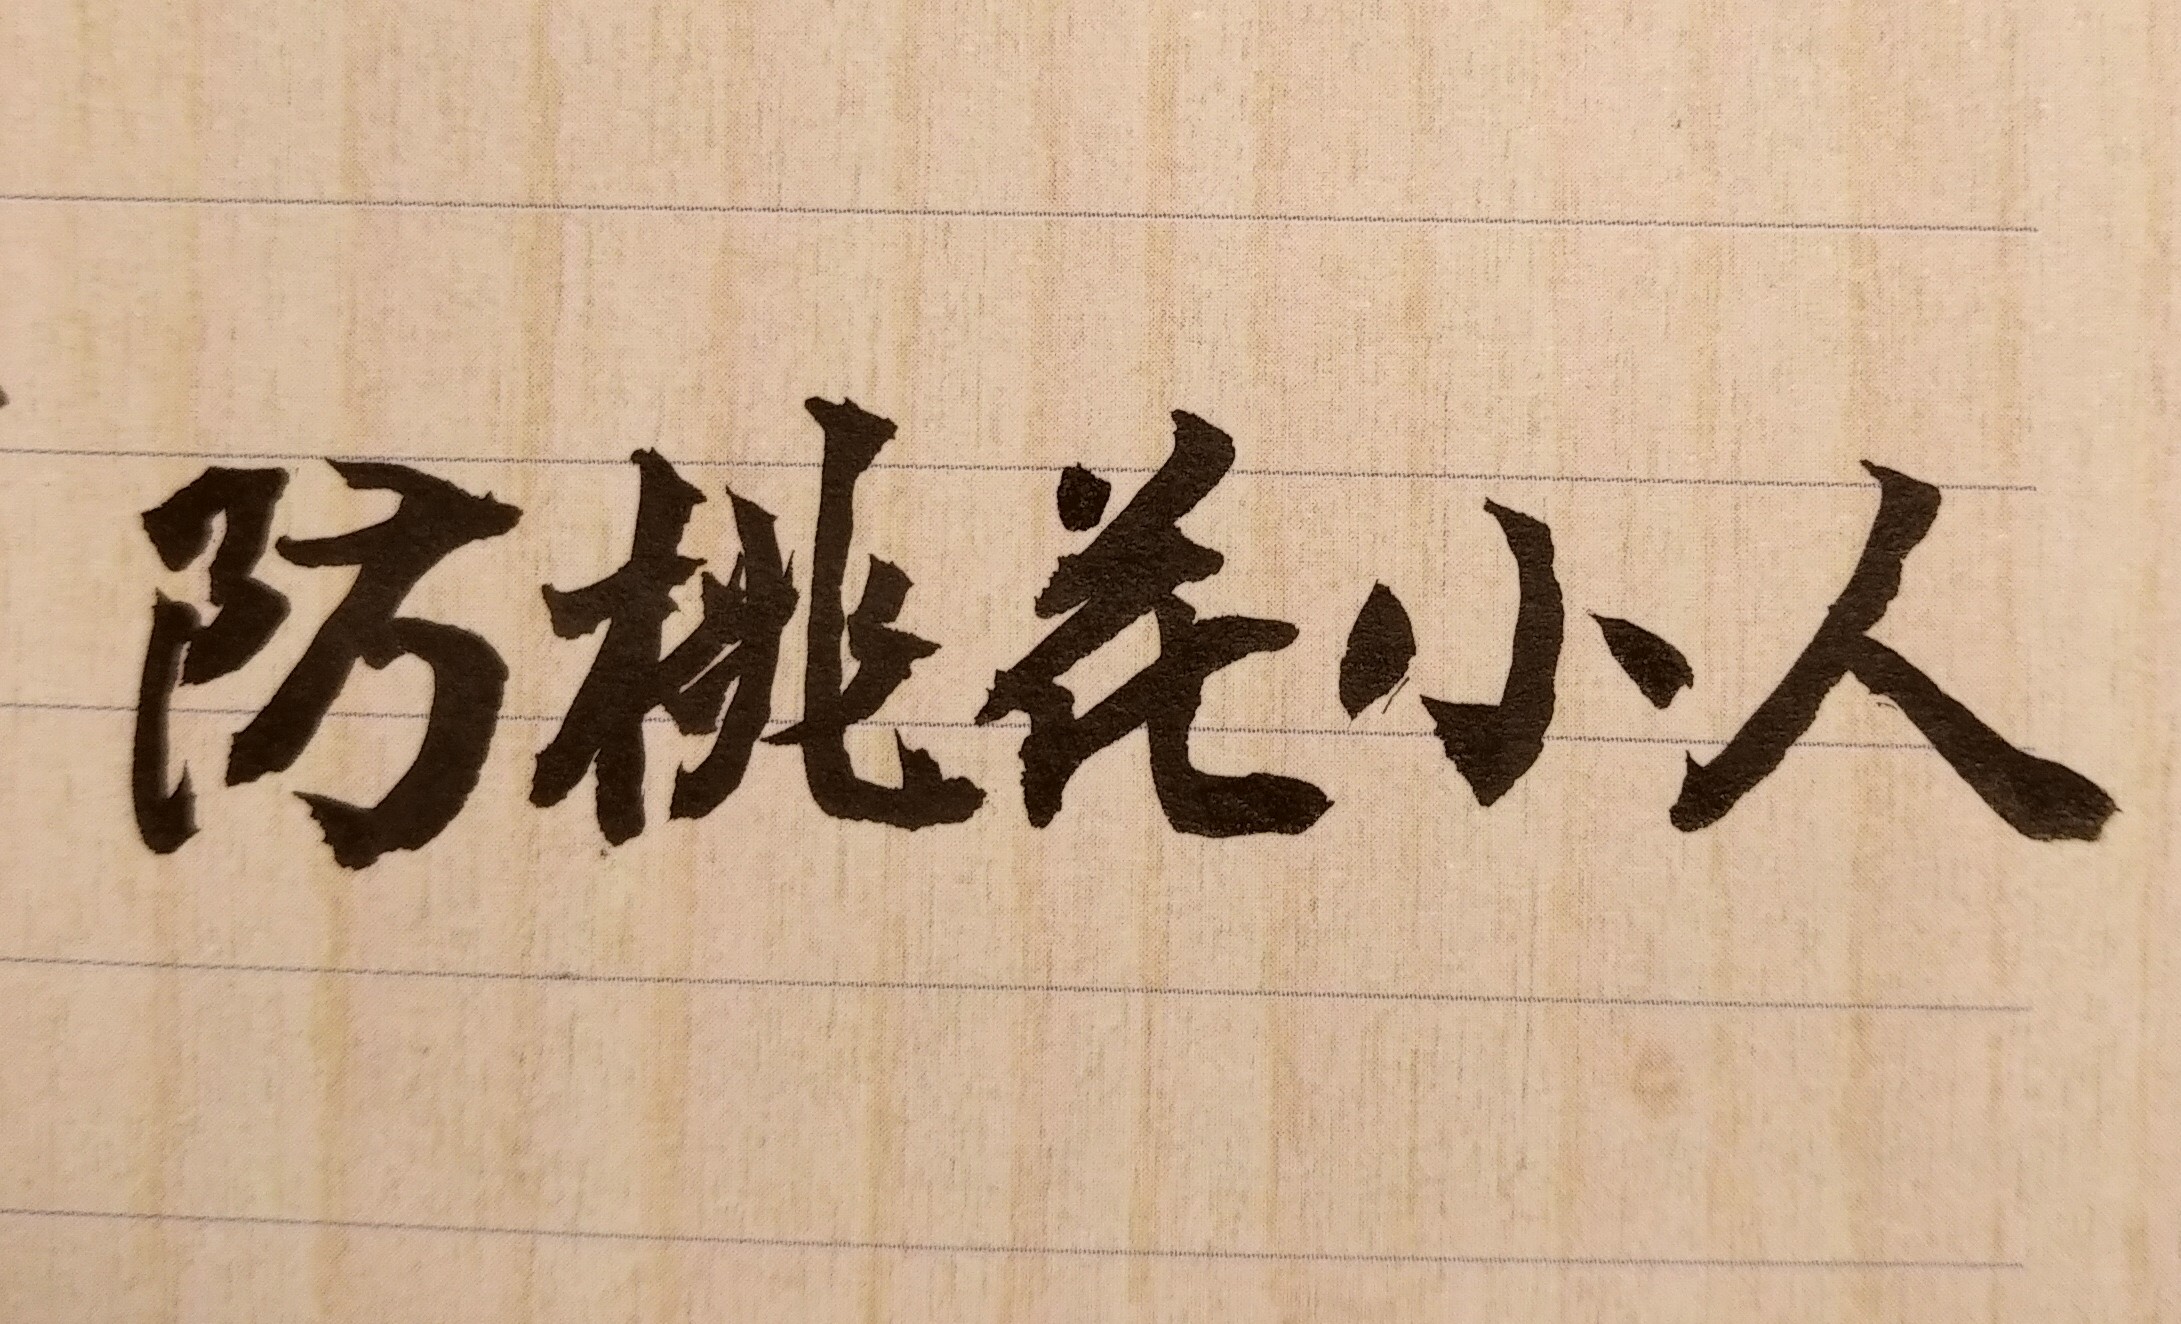 防桃花小人